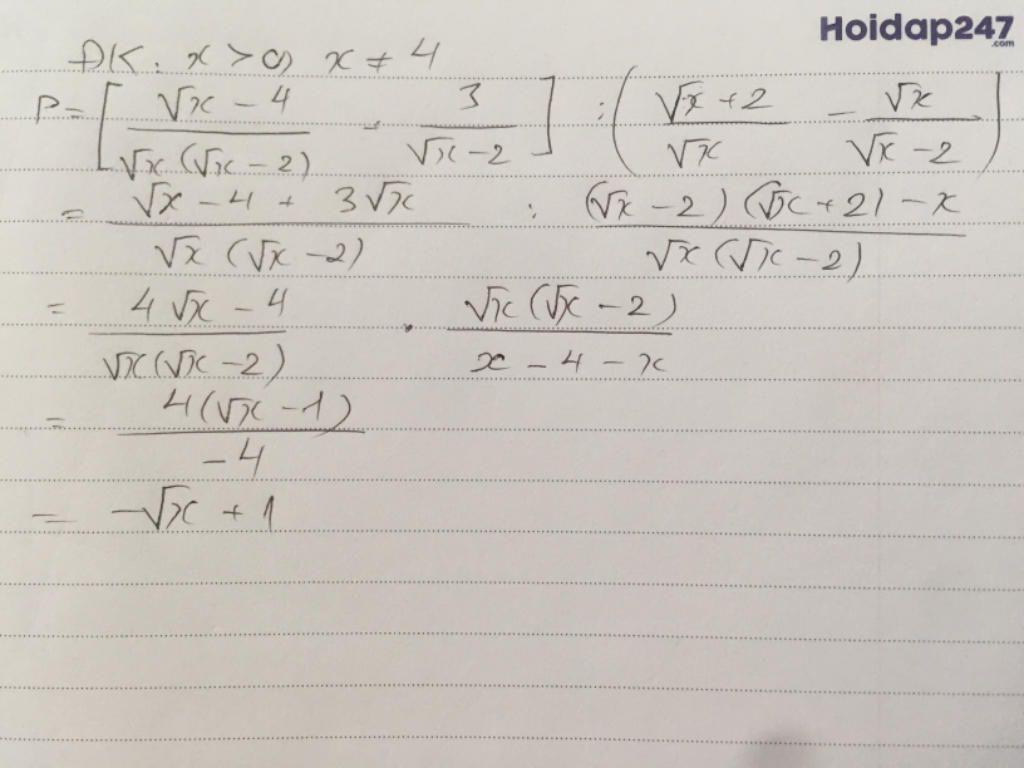 Hoidap247
.com
ĐK: x > 0, x ≠ 4
P = [ (√x - 4)/(√x (√x - 2)) - 3/(√x - 2) ] : ( (√x + 2)/√x - √x/(√x - 2) )
= (√x - 4 + 3√x)/(√x (√x - 2)) : ((√x - 2)(√x + 2) - x)/(√x (√x - 2))
= (4√x - 4)/(√x(√x - 2)) . (√x (√x - 2))/(x - 4 - x)
= (4(√x - 1))/(-4)
= -√x + 1